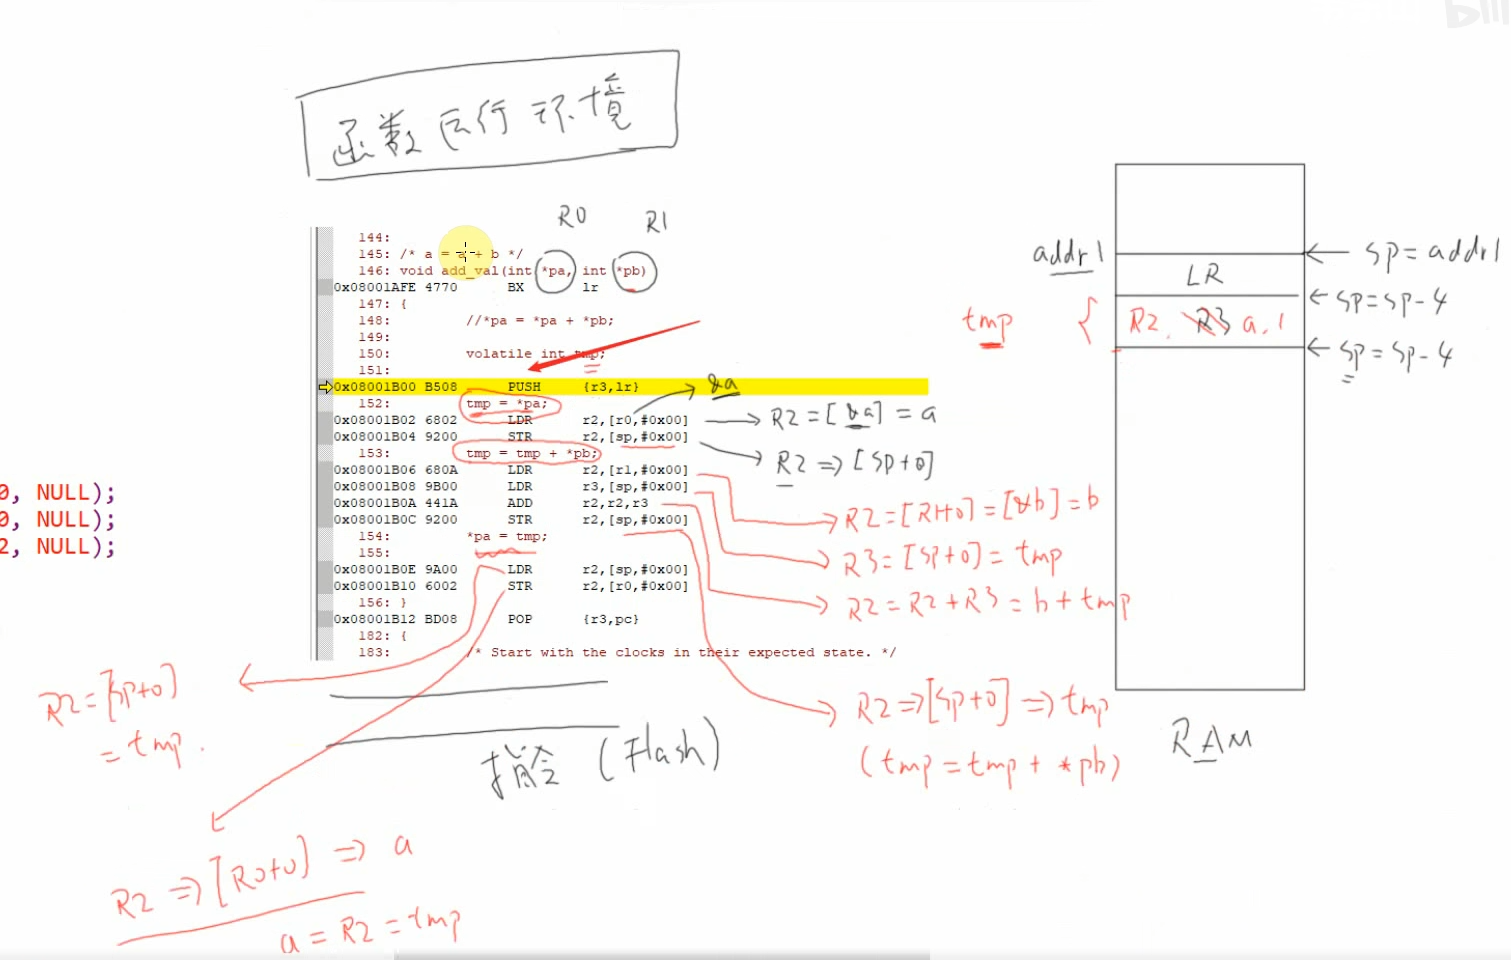 函数运行环境
R0 R1
144:
145: /* a = a + b */
146: void add_val(int *pa, int *pb)
0x08001AFE 4770 BX lr
147: {
148: //*pa = *pa + *pb;
149:
150: volatile int tmp;
151:
0x08001B00 B508 PUSH {r3,lr}
152: tmp = *pa;
0x08001B02 6802 LDR r2,[r0,#0x00]
0x08001B04 9200 STR r2,[sp,#0x00]
153: tmp = tmp + *pb;
0x08001B06 680A LDR r2,[r1,#0x00]
0x08001B08 9B00 LDR r3,[sp,#0x00]
0x08001B0A 441A ADD r2,r2,r3
0x08001B0C 9200 STR r2,[sp,#0x00]
154: *pa = tmp;
155:
0x08001B0E 9A00 LDR r2,[sp,#0x00]
0x08001B10 6002 STR r2,[r0,#0x00]
156: }
0x08001B12 BD08 POP {r3,pc}
182: {
183: /* Start with the clocks in their expected state. */
&a
R2=[&a]=a
R2⇒[SP+0]
R2=[R1+0]=[&b]=b
R3=[SP+0]=tmp
R2=R2+R3=b+tmp
R2⇒[SP+0]⇒tmp
(tmp=tmp+*pb)
R2=[SP+0]
=tmp.
R2⇒[R0+0]⇒a
a=R2=tmp
指令(Flash)
0, NULL);
0, NULL);
2, NULL);
addr1
SP=addr1
LR
SP=SP-4
tmp {
R2. R3 a.1
SP=SP-4
RAM